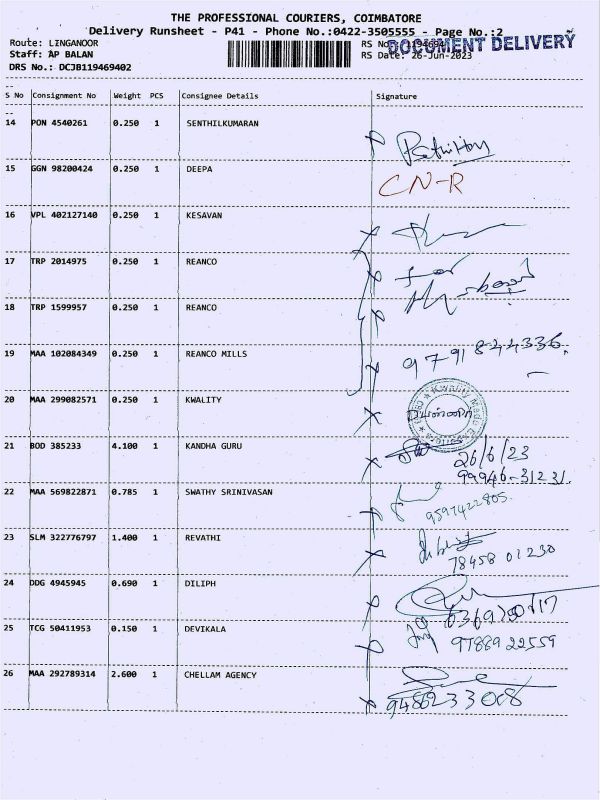 THE PROFESSIONAL COURIERS, COIMBATORE
Delivery Runsheet - P41 - Phone No.:0422-3505555 - Page No.:2
Route: LINGANOOR
RS No.: 11946940
DOCUMENT DELIVERY
Staff: AP BALAN
RS Date: 26-Jun-2023
DRS No.: DCJB119469402
S No Consignment No Weight PCS Consignee Details Signature
14 PON 4540261 0.250 1 SENTHILKUMARAN
15 GGN 98200424 0.250 1 DEEPA
CN-R
16 VPL 402127140 0.250 1 KESAVAN
17 TRP 2014975 0.250 1 REANCO
for
18 TRP 1599957 0.250 1 REANCO
19 MAA 102084349 0.250 1 REANCO MILLS
9791844336.
20 MAA 299082571 0.250 1 KWALITY
21 BOD 385233 4.100 1 KANDHA GURU
26/6/23
99946-31231.
22 MAA 569822871 0.785 1 SWATHY SRINIVASAN
9597422805.
23 SLM 322776797 1.400 1 REVATHI
78458 01230
24 DDG 4945945 0.690 1 DILIPH
25 TCG 50411953 0.150 1 DEVIKALA
97889 22559
26 MAA 292789314 2.600 1 CHELLAM AGENCY
9486233008